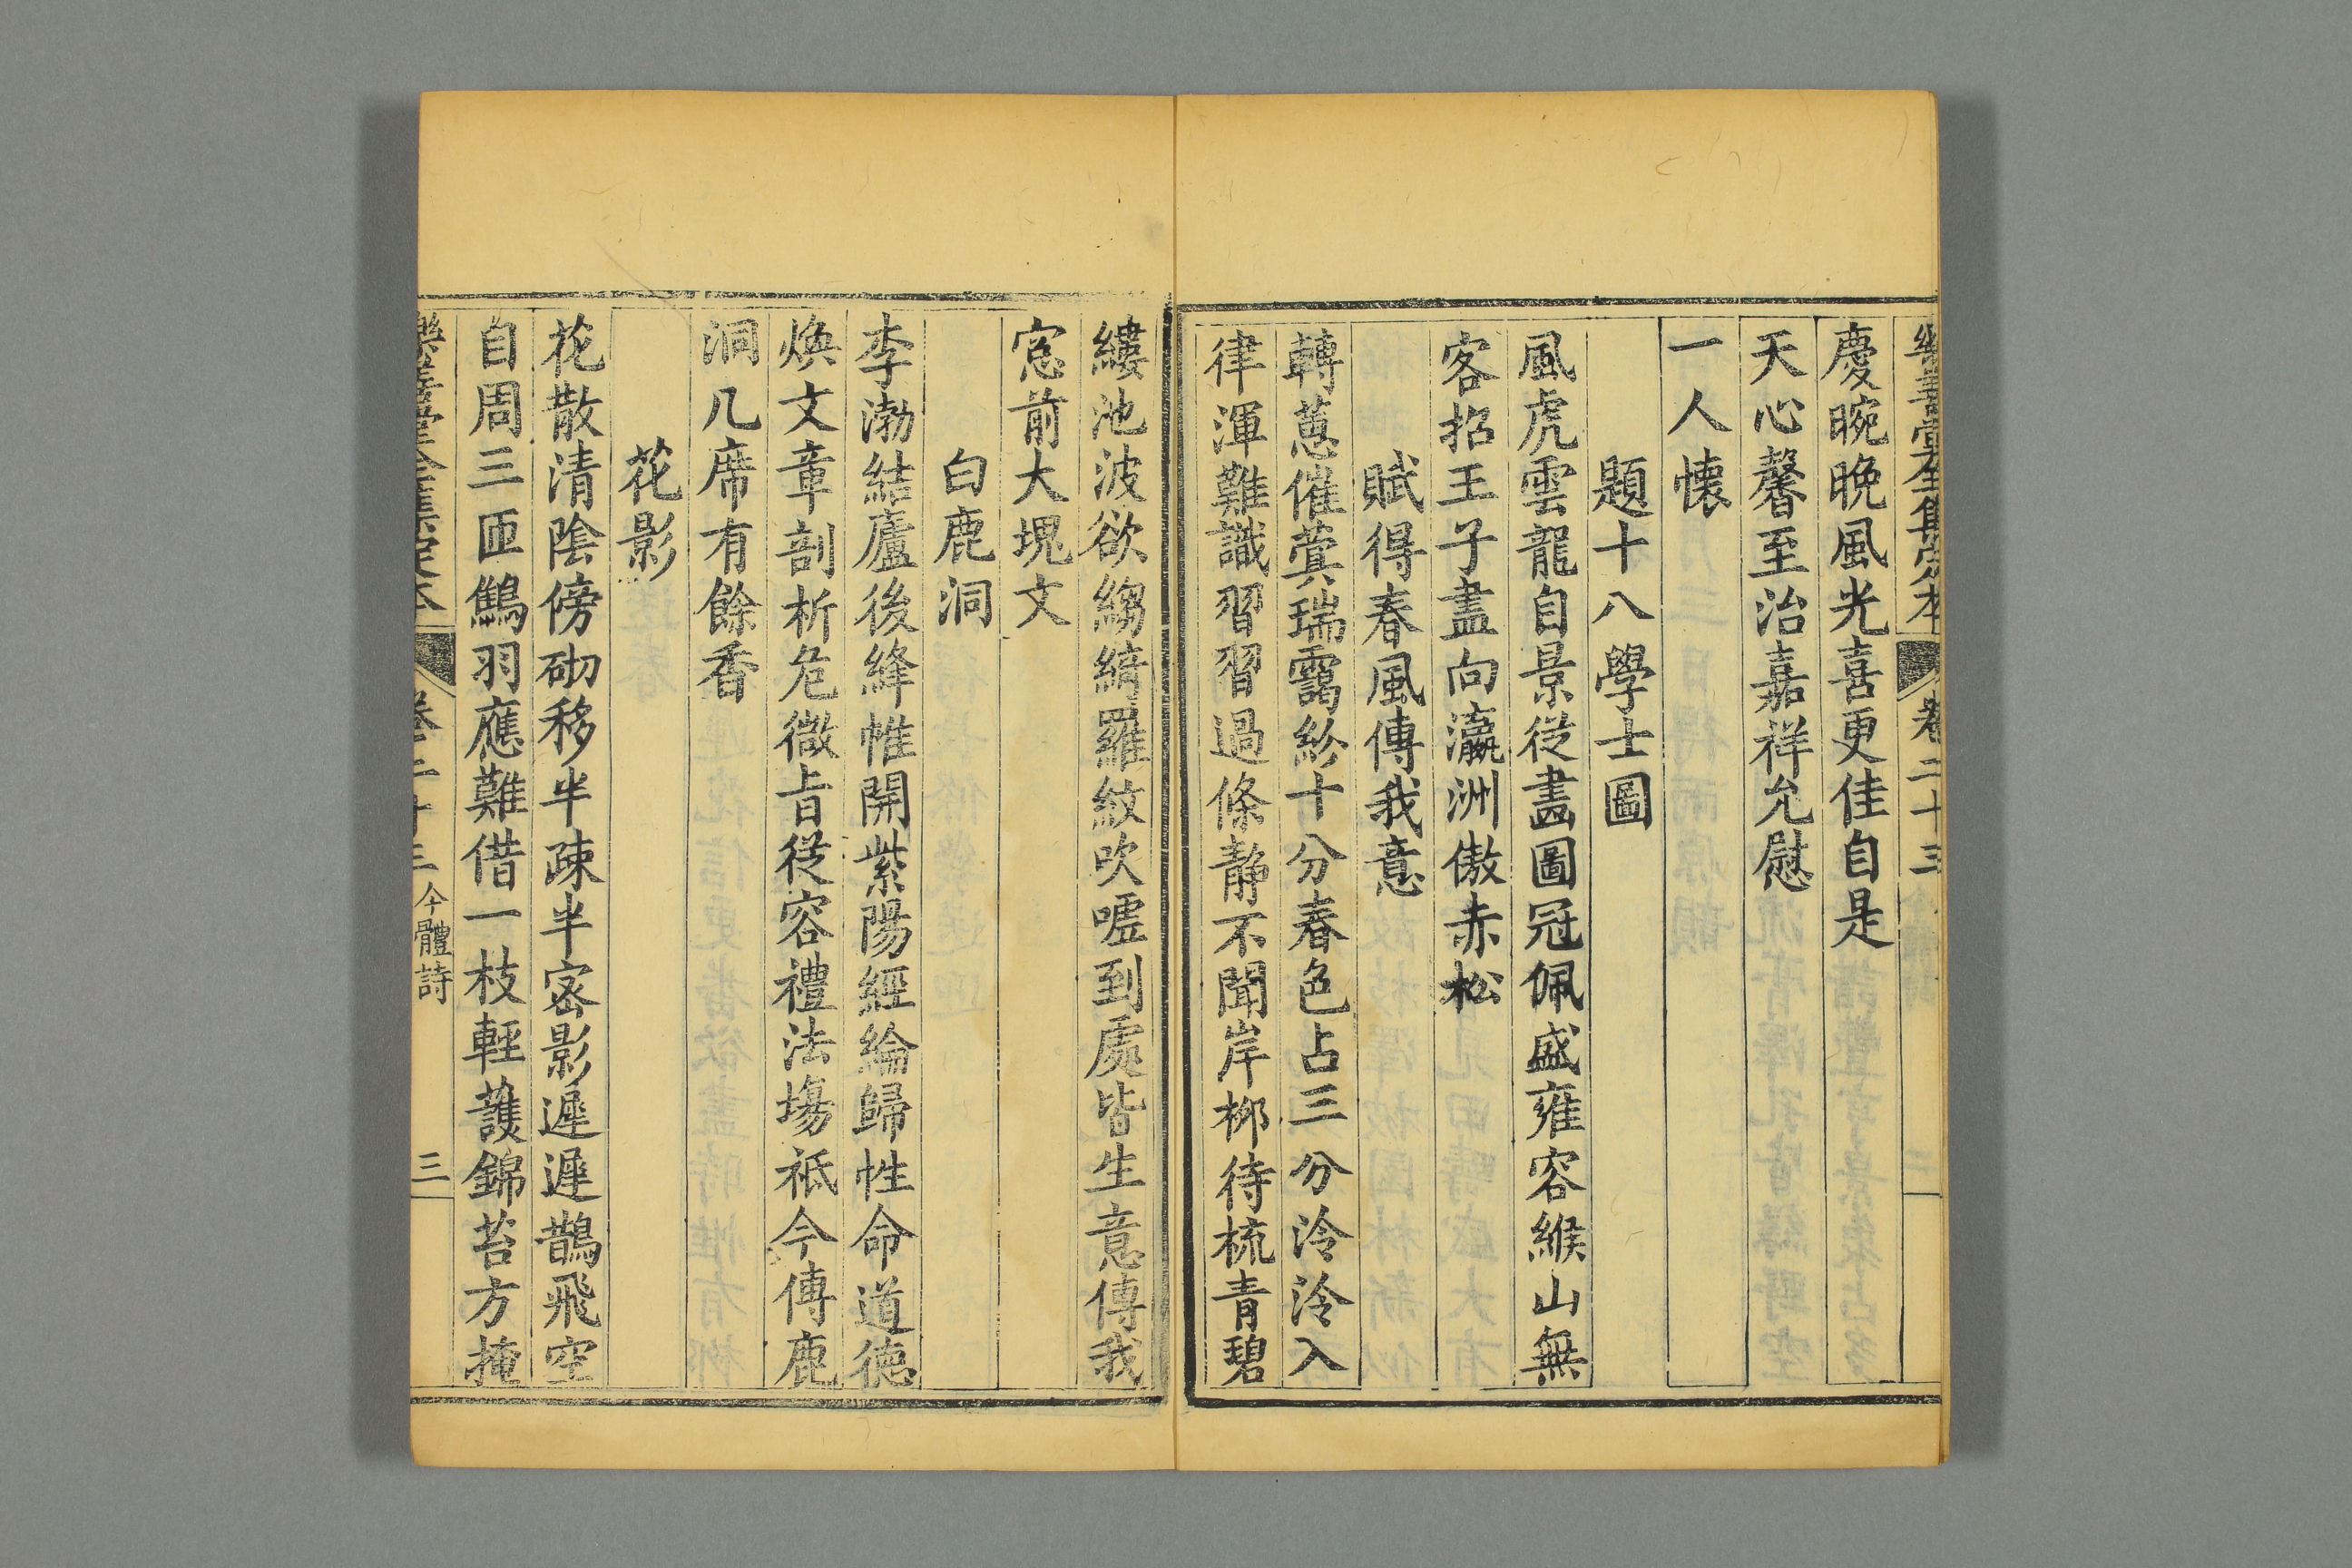 樂善堂全集定本 卷二十三
慶晼晚風光喜更佳自是
天心馨至治嘉祥允慰
一人懷
題十八學士圖
風虎雲龍自景從畵圖冠佩盛雍容緱山無
客招王子盡向瀛洲傲赤松
賦得春風傳我意
轉蕙催蓂瑞靄紛十分春色占三分泠泠入
律渾難識習習過條靜不聞岸栁待梳青碧
縷池波欲縐綺羅紋吹噓到處皆生意傳我
窓前大塊文
白鹿洞
李渤結廬後絳帷開紫陽經綸歸性命道德
煥文章剖析危微旨從容禮法塲祗今傳鹿
洞几席有餘香
花影
花散清陰傍砌移半疎半宻影遲遲鵲飛空
自周三匝鷦羽應難借一枝輕護錦苔方掩
樂善堂全集定本 卷二十三 今體詩 三